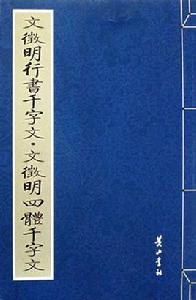 文徵明行書千字文·文徵明四體千字文
黄山書社